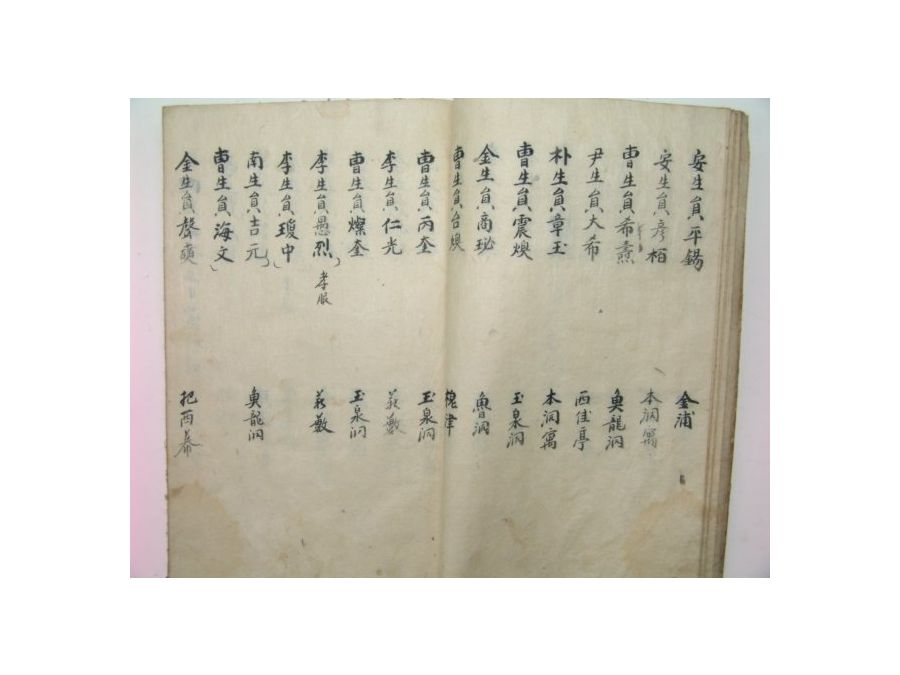 安生員平錫 金浦
安生員彦栢 本洞寓
曺生員希 奥龍洞
尹生員大希 西佳亭
朴生員章玉 本洞寓
曺生員震煥 玉泉洞
金生員商珌 魚洞
曺生員台煥 槐津
曺生員丙奎 玉泉洞
李生員仁光 藪
曺生員燦奎 玉泉洞
李生員愚烈 孝服 藪
李生員瓊中
南生員吉元 奥龍洞
曺生員海文
金生員聲